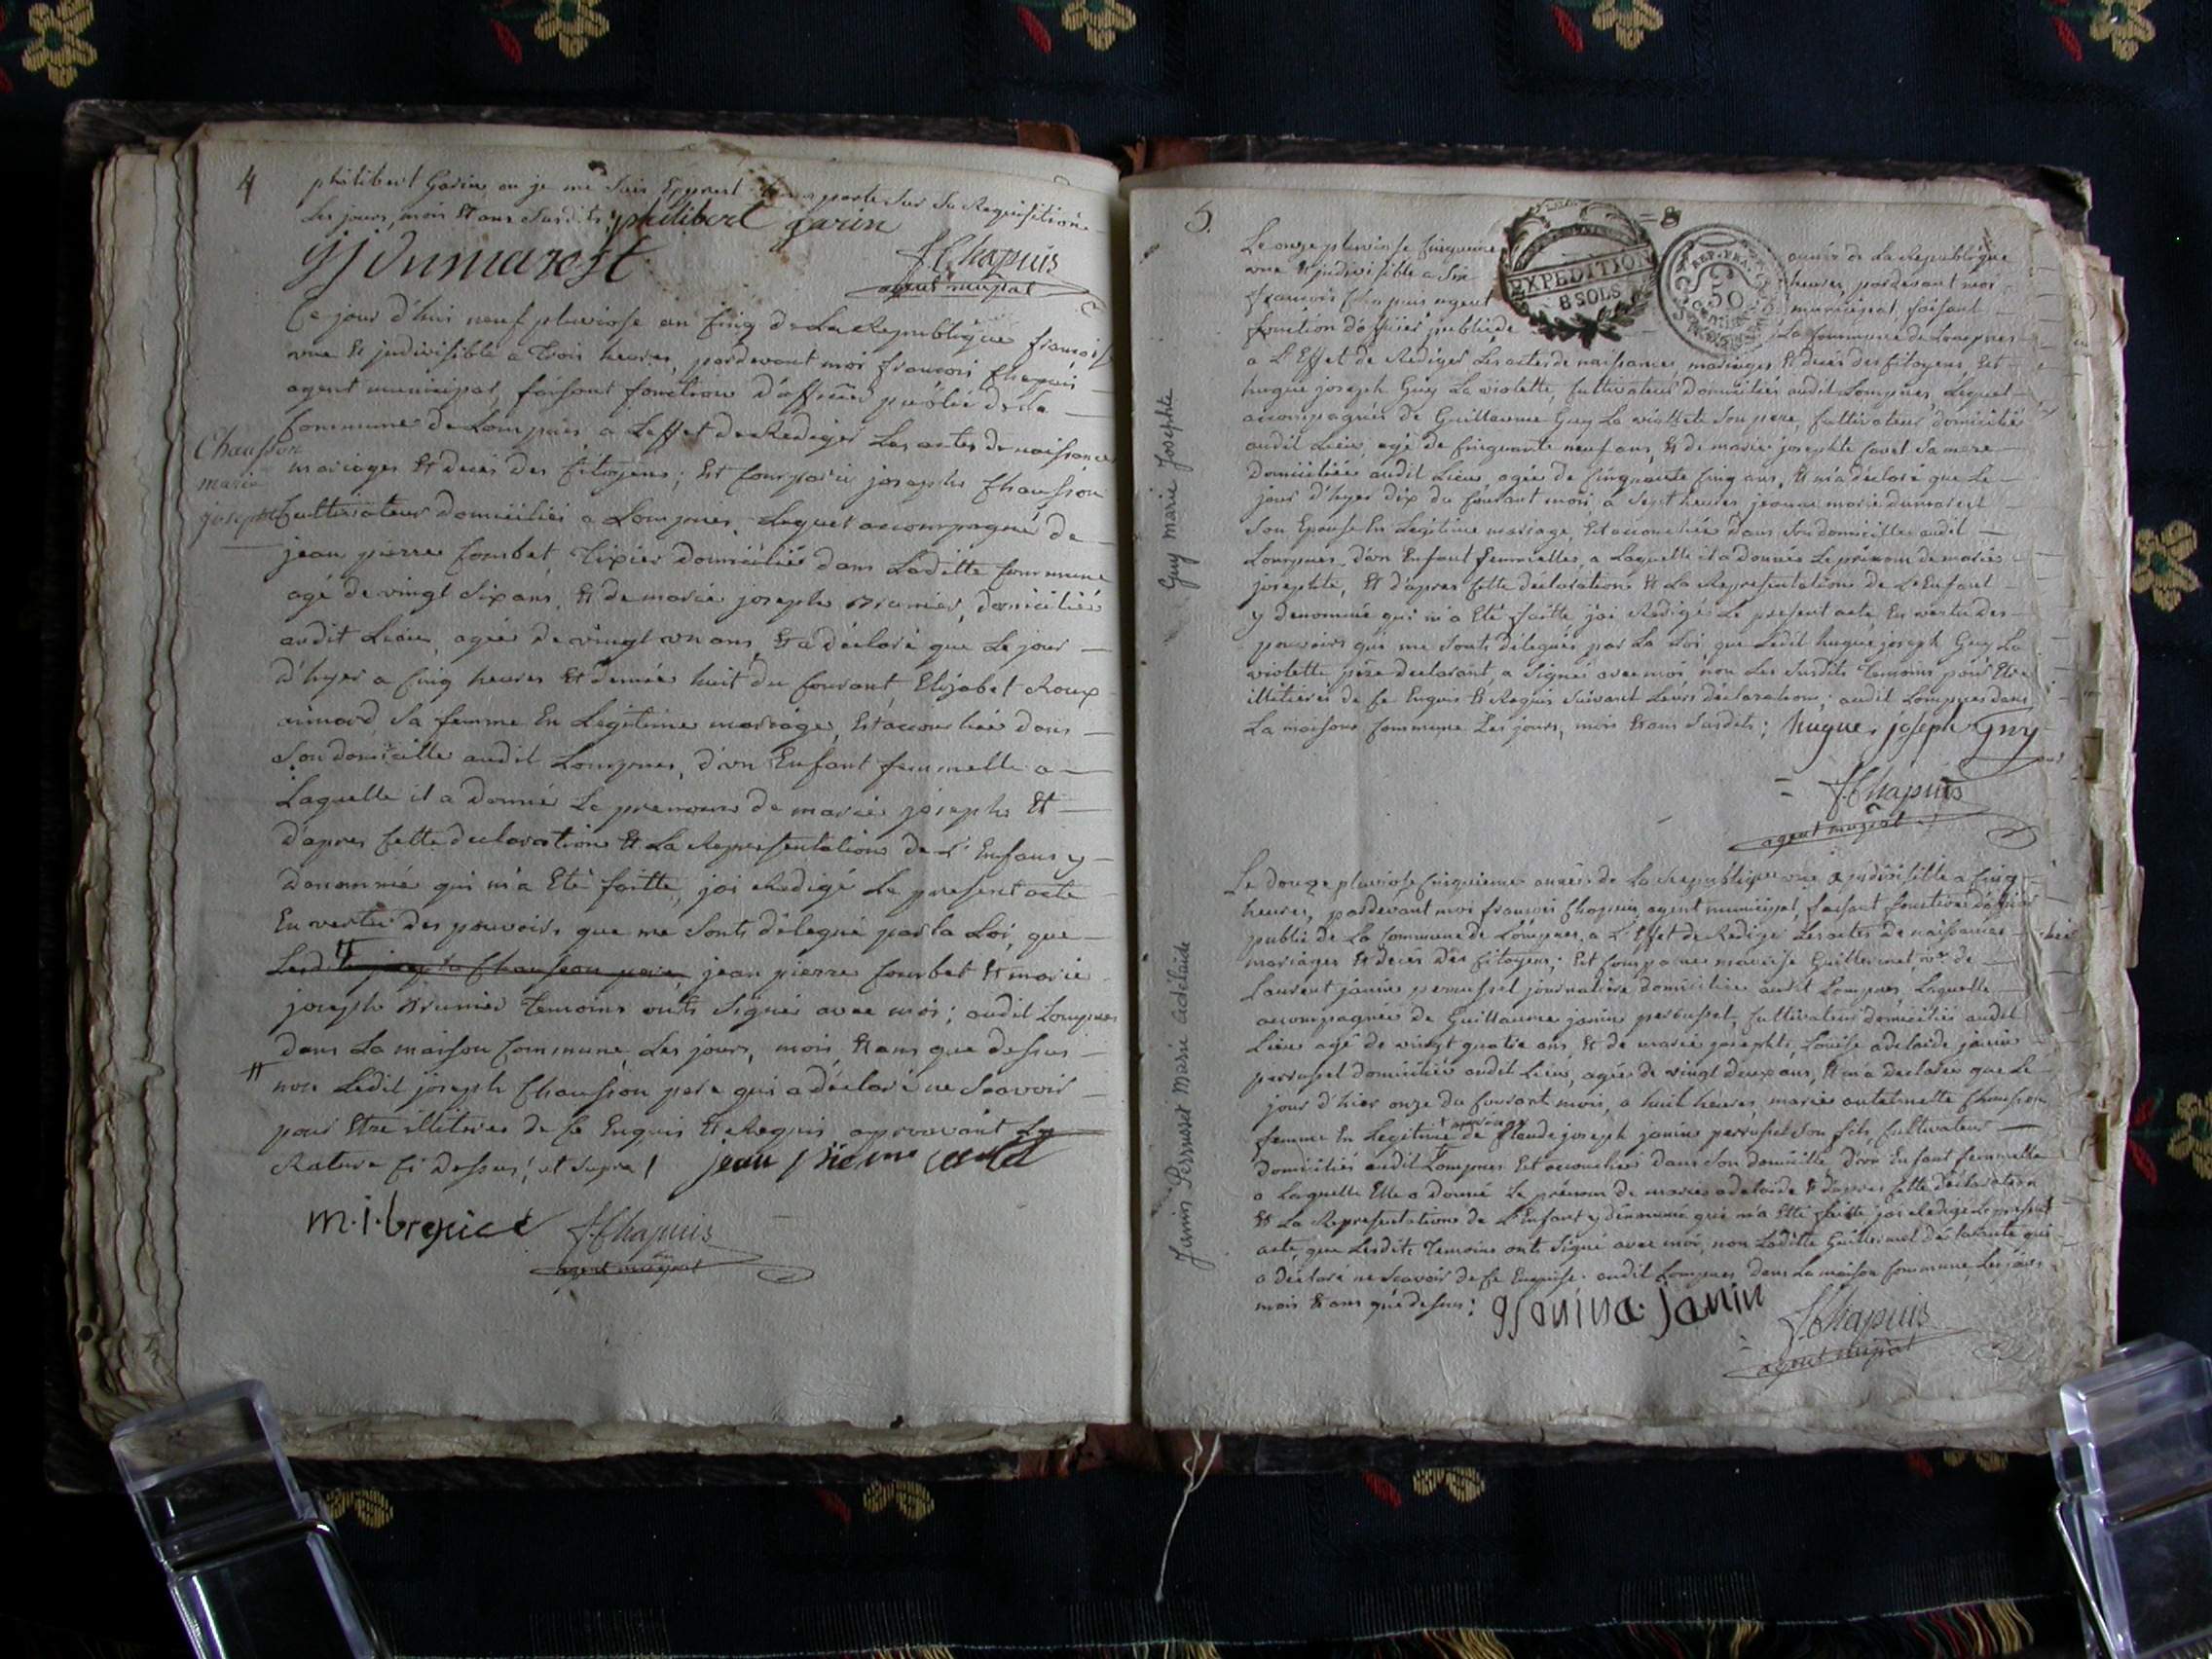 4
philibert Garin ou je me suis Exprest transporté sur sa Requisitione
Les jours, mois Et ans susdits; philibert garin
jj dumarest
f. Chapuis
agent munpal
Ce jour d'hui neuf pluviose an cinq de La Republique françoise
une Et jndivisible a trois heures, pardevant moi francois Chapuis
agent municipal, faisant fonction d'officier public de la
Commune de Lompnes, a L'effet de Rediger Les actes de naissances
Chausson
marie
josephe
mariages Et deces des Citoyens; Est Comparu josephe Chausson
Cultivateur domicilié a Lompnes, Lequel accompagné de
jean pierre Combet, Tixier domicilié dans Laditte Commune
agé de vingt six ans, Et de marie josephe Brunier, domiciliée
audit Lieu, agée de vingt un ans, Et a déclaré que Le jour
d'hyer a cinq heures Et demie huit du Courant Elizabet Roux
aimard sa femme En Légitime mariage, Est accouchée dans
son domicille audit Lompnes, d'un Enfant femmelle a
Laquelle il a donné Le prenom de marie josephe Et
d'apres Cette declaration Et La Representation de L'Enfant y
denommé qui m'a Eté faitte, jai Redigé Le present acte
En vertu des pouvoirs que me sonts délegué par la Loi, que
Lesdits joseph Chausson pere, jean pierre Combet Et marie
joseph Brunier Temoins onts signés avec moi; audit Lompnes
dans La maison Commune Les jours, mois, Et ans que dessus
non Ledit joseph Chausson pere qui a déclaré ne scavoir
pour Etre illiteré de Ce Enquis Et Requis, aprouvant La
Rature Ci dessus! et supra! jean pierre
m.i. f. Chapuis
agent munpal
5.
= 8
EXPEDITION
8 SOLS
REP. FRA.
50
Centimes
Le onze pluviose Cinquieme année de La Republique
une Et jndivisible a Six heures, pardevant moi
francois Chapuis agent municipal, faisant
fonction d'officier public de La Commune de Lompnes
a L'Effet de Rediger Les actes de naissances mariages Et décés des Citoyens, Est
hugue joseph Guy La violette, Cultivateur domicilié audit Lompnes, Lequel
accompagnés de Guillaume Guy La violette son pere, Cultivateur domicilié
audit Lieu, agé de Cinquante neuf ans, Et de marie josephte Cavet sa mere
Domiciliée audit Lieu, agée de Cinquante Cinq ans, Et m'a déclaré que Le
jour d'hyer dix du Courant mois, a Sept heures, jeanne marie dumarest
son Epouse En Legitime mariage, Est accouchée dans son domicille audit
Lompnes, d'un Enfant femmelle, a Laquelle il a donné Le prénom de marie
josephte, Et d'apres Cette déclaration Et La Representation de L'Enfant
y denommé qui m'a Eté faitte, jai Redigé Le present acte, En vertu des
pouvoirs que me sonts délegués par La Loi, que Ledit hugue joseph Guy La
violette, père declarant, a signés avec moi, non Les susdits Temoins pour Etre
illiterés de Ce Enquis Et Requis suivant Leurs déclarations; audit Lompnes dans
La maison Commune Les jours, mois Et ans susdits; hugue joseph Guy
Guy Marie Josephte
f. Chapuis
agent munpal
Le douze pluviose Cinquieme année de La Republique une Et jndivisible a Cinq
heures, pardevant moi francois Chapuis agent municipal, faisant fonction d'officier
public de La Commune de Lompnes, a L'Effet de Rediger Les actes de naissances
mariages Et décés des Citoyens; Est Comparue Guillermet, ve de
Laurent janin perrusset journaliere domiciliée audit Lompnes, Laquelle
accompagnée de Guillaume janin perrusset, Cultivateur domicilié audit
Lieu agé de vingt quatre ans, Et de marie josephte, Louise adelaide janin
perrusset domiciliée audit Lieu, agée de vingt deux ans, Et m'a declarée que Le
jour d'hier onze du Courant mois, a huit heures, marie anternette Chausson
femme En Legitime mariage de Claude joseph janin perrusset son fils, Cultivateur
domicilié audit Lompnes Est accouchée dans son domicille d'un Enfant femmelle
a Laquelle Elle a donné Le prénom de marie adelaide Et d'apres Cette déclaration
Et La Representation de L'Enfant y dénommé qui m'a Etté faitte jai Redigé Le present
acte, que Lesdits Temoins onts signé avec moi, non Laditte Guillermet déclarante qui
a déclaré ne scavoir de Ce Enquise. audit Lompnes dans La maison Commune, Les jours
mois Et ans que dessus; gjanin a. janin
Janin Perruset Marie Adélaïde
f. Chapuis
agent munpal